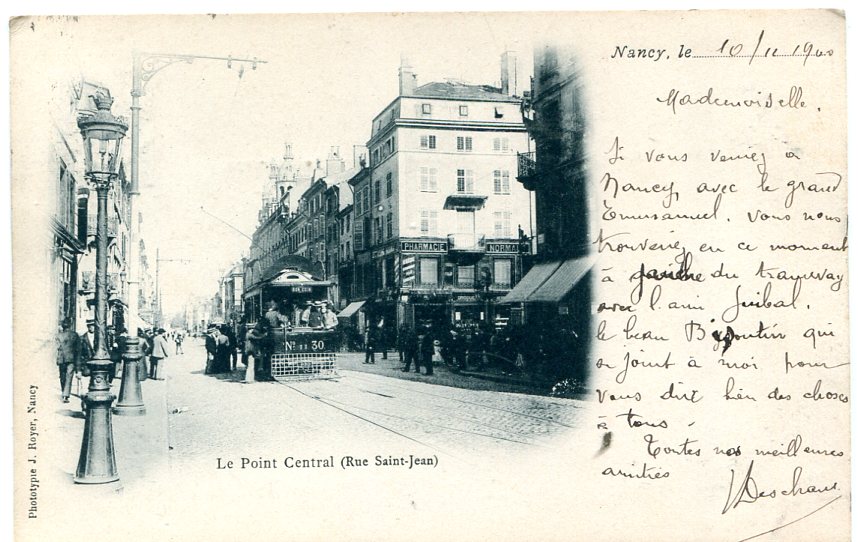 Nancy, le 10/11 1900
Mademoiselle,
Si vous veniez à
Nancy, avec le grand
Emmanuel. vous nous
trouveriez en ce moment
à gauche du tramway
avec l'ami Guibal.
le beau qui
se joint à moi pour
vous dire bien des choses
à tous.
Toutes nos meilleures
amitiés
Deschamps
PHARMACIE NORMA
N° 30
Le Point Central (Rue Saint-Jean)
Phototypie J. Royer, Nancy